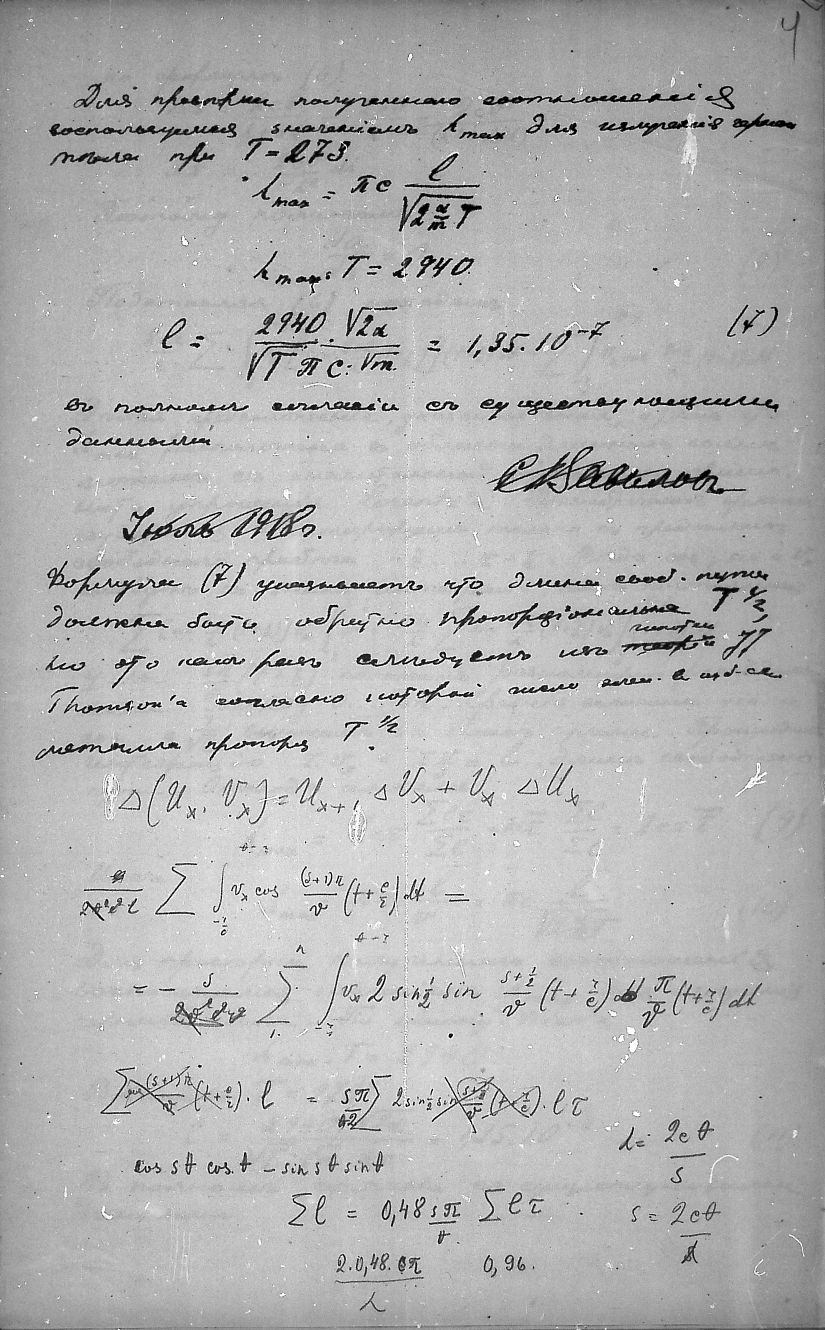 4
Для проверки полученнаго соотношенiя
воспользуемся значенiемъ λ max для излученiя чернаго
тела при T=273.
λ max = πc l / √(2 α/m T)
λ max. T = 2940.
l = 2940 . √2α / √T π c . √m = 1,35.10⁻⁷ (7)
въ полномъ согласiи съ существующими
данными.
СВавиловъ
Iюль 1918г.
Формула (7) указываетъ что длина своб. пути
должна быть обратно пропорцiональна T^½,
но это какъ разъ следуетъ изъ JJ
Thomson'а согласно которой число элек. въ
металла пропорц T^½.
Δ(Ux. Vx) = Ux+1 ΔVx + Vx ΔUx
Σ ∫ vx cos (s+1)π/ϑ (t+ ) dt =
= - Σ ∫ vx 2 sin ½ sin s+½/ϑ (t+ ) π/ϑ (t+ ) dt
Σ . l = sπ Σ 2 sin ½ sin . l τ
λ = 2cϑ / s
cos sϑ cos ϑ - sin sϑ sin ϑ
Σl = 0,48 sπ/ϑ Σlτ
s = 2cϑ / λ
2.0,48.cπ / λ 0,96.